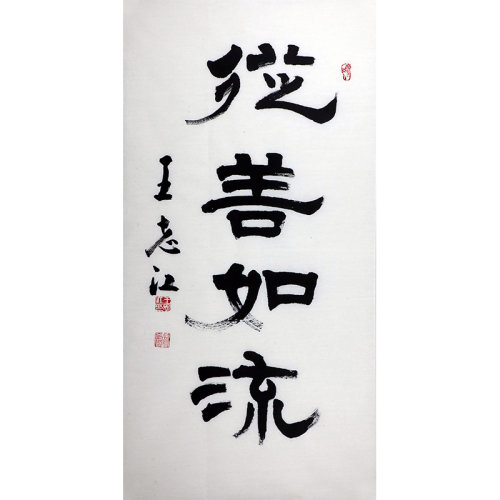 從善如流
王志江